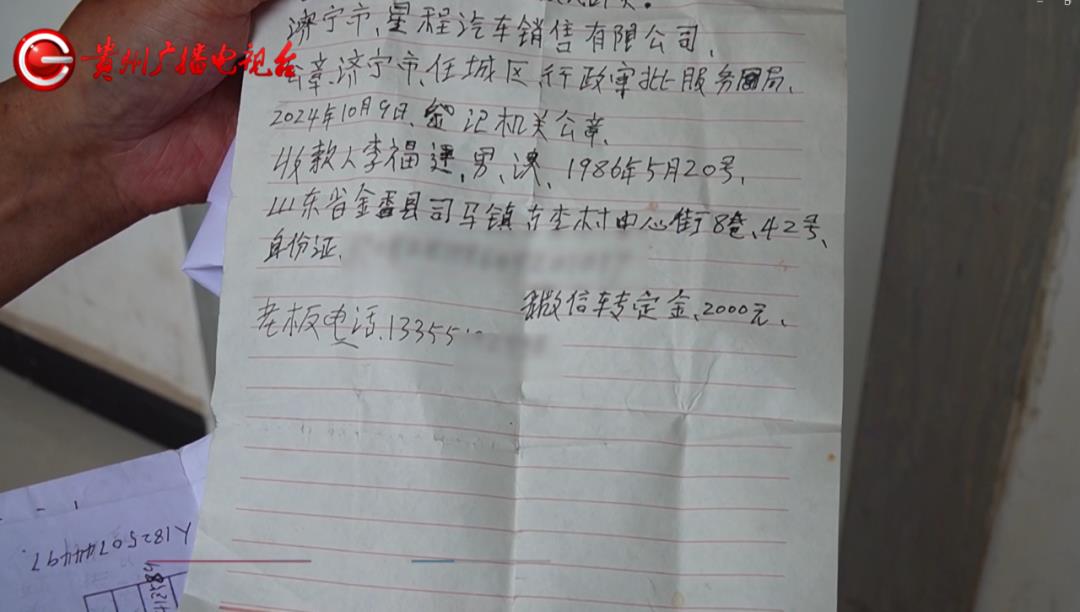 贵州广播电视台
济宁市,星程汽车销售有限公司,
公章,济宁市,任城区,行政审批服务局、
2024年10月9日、登记机关公章、
收款人李福运、男、汉、1986年5月20号,
山东省金乡县司马镇古李村中心街8巷、42号、
身份证、
我微信转定金、2000元、
老板电话、13355